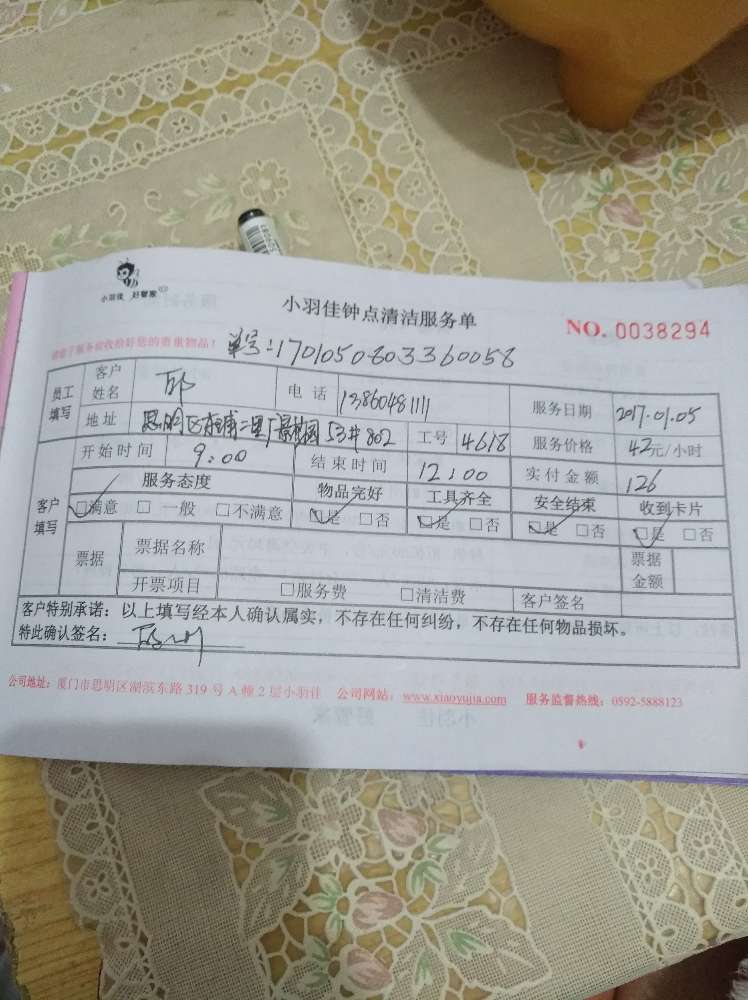 小羽佳 好管家
小羽佳钟点清洁服务单
NO. 0038294
务必于服务前收拾好您的贵重物品！
单号:1701050803360058
员工填写 客户姓名 邱 电话 13860481111 服务日期 2017.01.05
地址 思明区 二里 53# 802 工号 4618 服务价格 42元/小时
客户填写 开始时间 9:00 结束时间 12:00 实付金额 126
服务态度 物品完好 工具齐全 安全结束 收到卡片
☑满意 □一般 □不满意 ☑是 □否 ☑是 □否 ☑是 □否 ☑是 □否
票据 票据名称 票据金额
开票项目 □服务费 □清洁费 客户签名
客户特别承诺：以上填写经本人确认属实，不存在任何纠纷，不存在任何物品损坏。
特此确认签名：
公司地址：厦门市思明区湖滨东路 319 号 A 幢 2 层小羽佳 公司网站：www.xiaoyujia.com 服务监督热线：0592-5888123